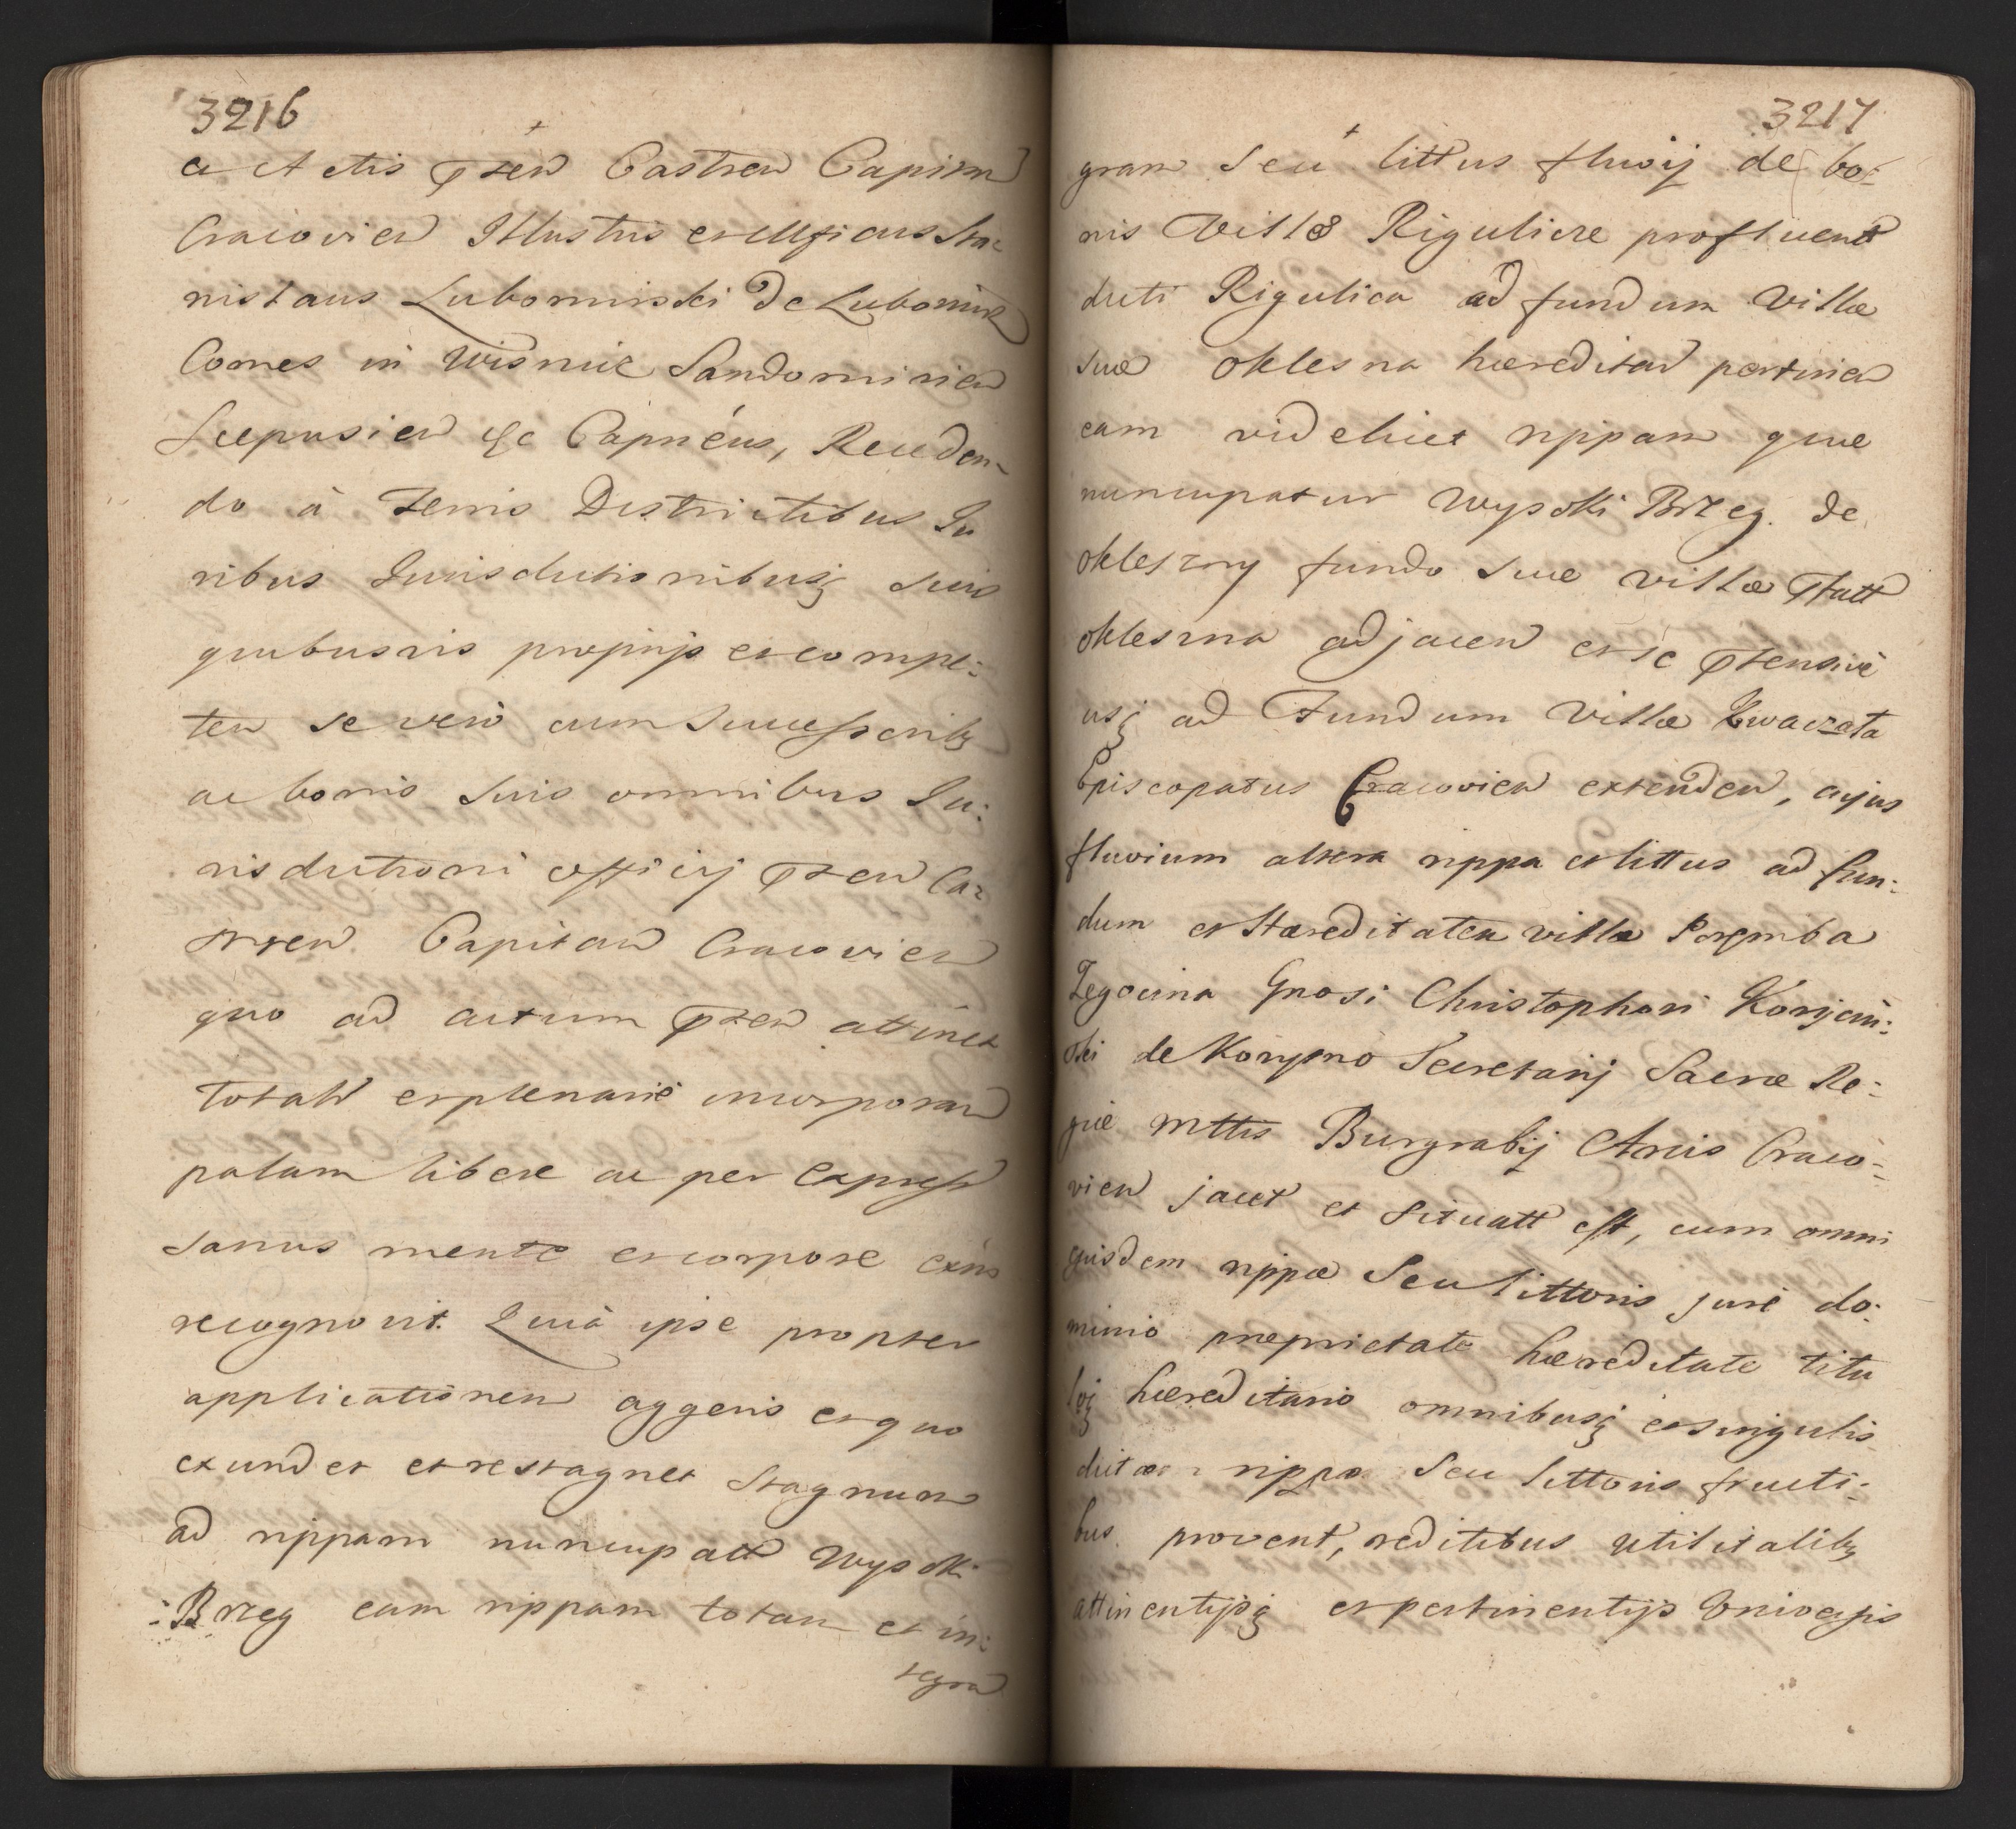 3216
a Actis Pzen Castren Capitan
Cracovien Illustris et Mficus Sta:
nislaus Lubomirski de Lubomirz
Comes in Wisnicz Sandomirien
Scepusien &c Capneus, Receden-
do à Terris Districtibus Ju
ribus Jurisdictionibusq suis
quibusvis proprijs et compe:
ten se vero cum Successoribq
ac bonis suis omnibus Ju:
risdictioni officij Pzen Ca:
stren Capitan Cracovien
quo ad actum Pzen attinet
totalr et plenarie incorporan
palam libere ac per Expressu
sanus mente et corpore exns
recognovit. Quià ipse propter
applicationem aggeris et quo
exundet et restagnet Stagnum
ad rippam nuncupatt Wysoki
Brzeg eam rippam totam et in:
tegra
3217
gram Seu littus fluvij de bo:
nis Villæ Regulicze profluent
dicti Rigulica ad fundum Villæ
suæ Oklesna hæreditar pertinen
eam videlicet rippam quæ
nuncupatur Wysoki Brzeg. de
Okleszny fundo suæ villæ Pfatt
Okleszna adjacen et se Ptensive
usq ad Fundum Villæ Kwaczata
Episcopatus Cracovien extenden, cujus
fluvium altera rippa et littus ad fun:
dum et Hæreditatem villæ Poremba
Zegocina Gnosi Christophori Korycin:
ski de Korypno Secretarij Sacræ Re:
giæ Mttis Burgrabij Arcis Craco:
vien jacet et Situatt est, cum omni
ejusdem rippæ Seu littoris jure do:
minio proprietate hæreditate titu
loq hæreditario omnibusq et singulis
dictæ rippæ Seu littoris fructi:
bus provent, reditibus utilitatibq
attinentijsq et pertinentijs Universis